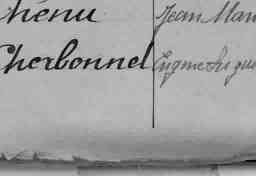 hénu Jean Mar
Cherbonnel Eugne